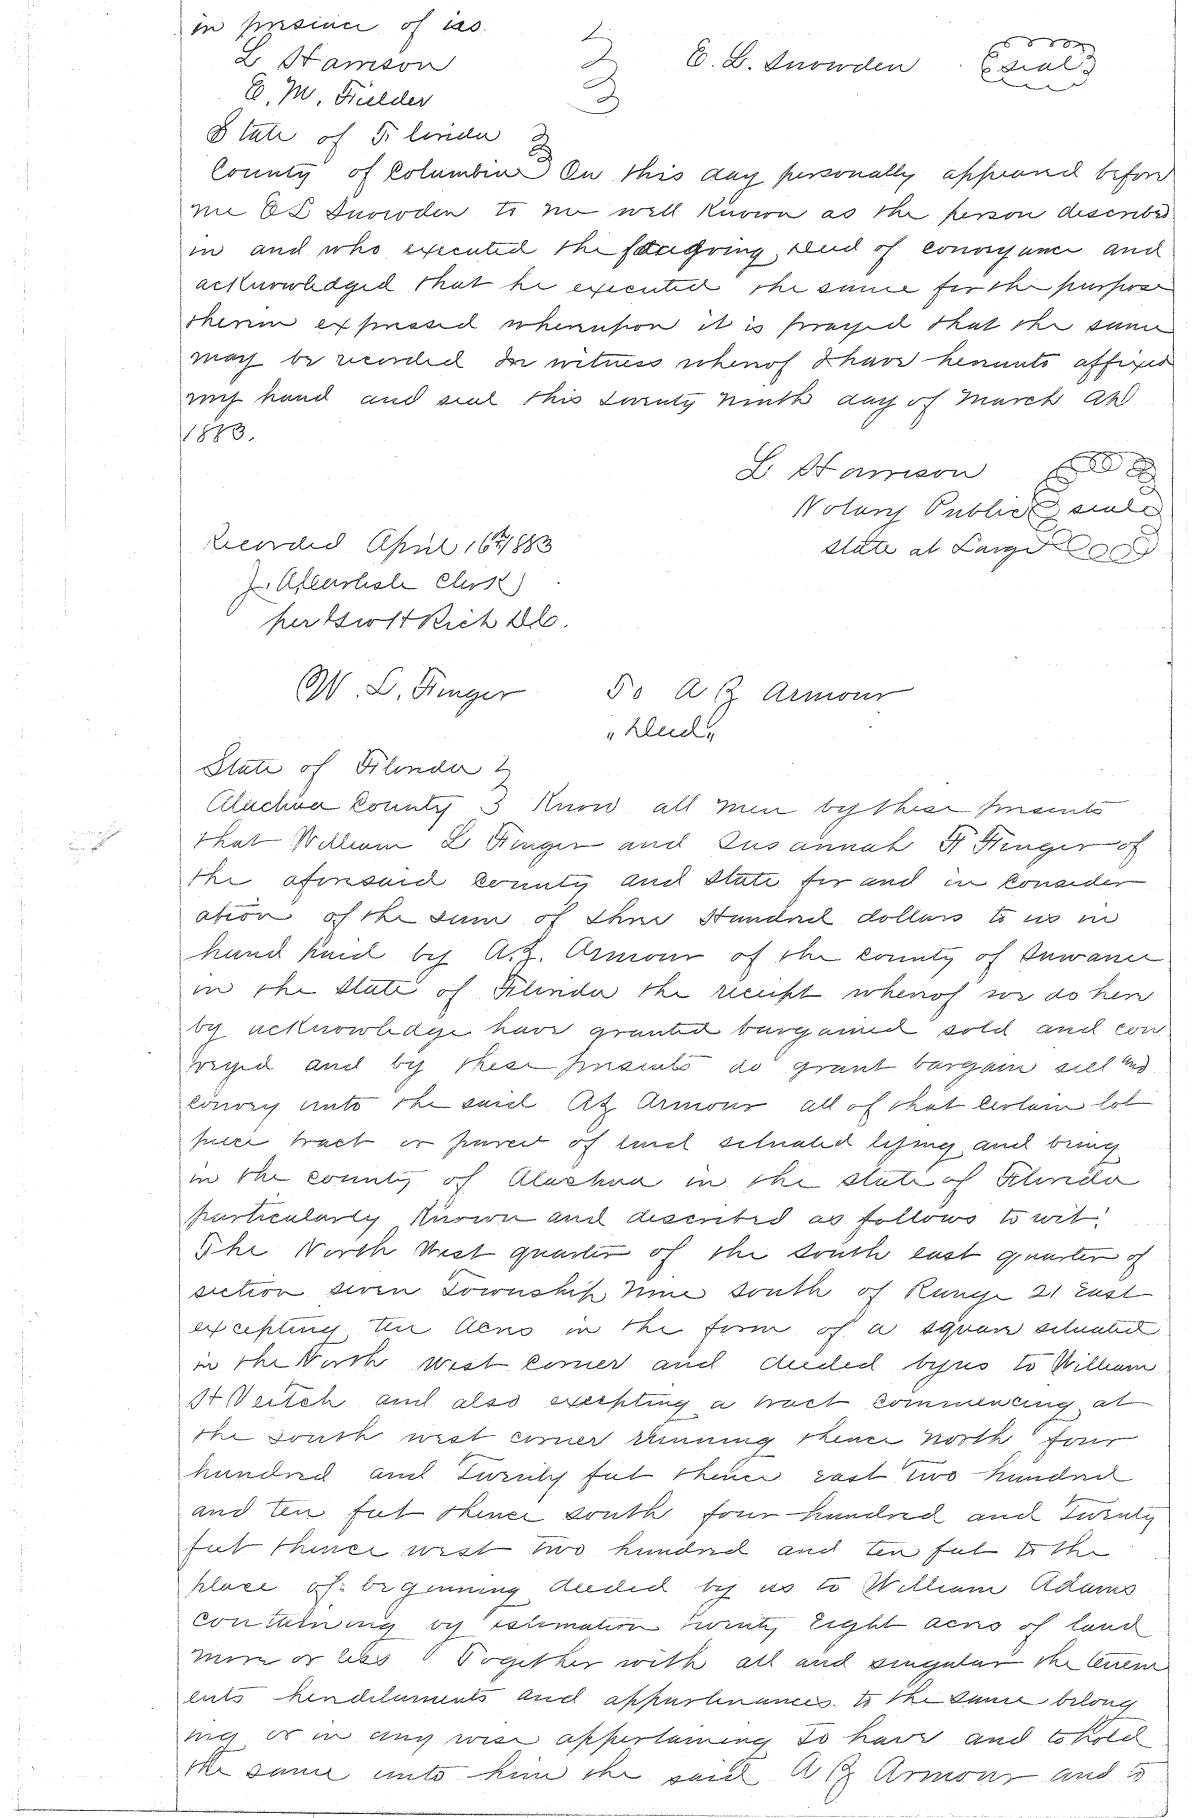 in presence of us.
L Harrison
E. L. Snowden (seal)
E. M. Fielder
State of Florida
County of Columbia On this day personally appeared before
me E L Snowden to me well known as the person described
in and who executed the foregoing deed of conveyance and
acknowledged that he executed the same for the purpose
therein expressed whereupon it is prayed that the same
may be recorded In witness whereof I have hereunto affixed
my hand and seal this twenty ninth day of March AD
1883.
L Harrison
Notary Public seal
State at Large
Recorded April 16th 1883
J. A Carlisle Clerk
per Rich D.C.
W. L. Finger To A Z Armour
"Deed"
State of Florida
Alachua County Know all men by these presents
that William L Finger and Susannah F Finger of
the aforesaid county and state for and in consider
ation of the sum of three Hundred dollars to us in
hand paid by A. Z. Armour of the county of Suwanee
in the State of Florida the receipt whereof we do here
by acknowledge have granted bargained sold and con
veyed and by these presents do grant bargain sell and
convey unto the said A Z Armour all of that certain lot
piece tract or parcel of land situated lying and being
in the county of Alachua in the state of Florida
particularly known and described as follows to wit:
The North West quarter of the south east quarter of
section seven Township Nine south of Range 21 East
excepting ten Acres in the form of a square situated
in the North west corner and deeded by us to William
H Veitch and also excepting a tract commencing at
the south west corner running thence north four
hundred and Twenty feet thence east two hundred
and ten feet thence south four hundred and Twenty
feet thence west two hundred and ten feet to the
place of beginning deeded by us to William Adams
containing by estimation twenty Eight acres of land
more or less Together with all and singular the tenem
ents hereditaments and appurtenances to the same belong
ing or in any wise appertaining To have and to hold
the same unto him the said A Z Armour and to